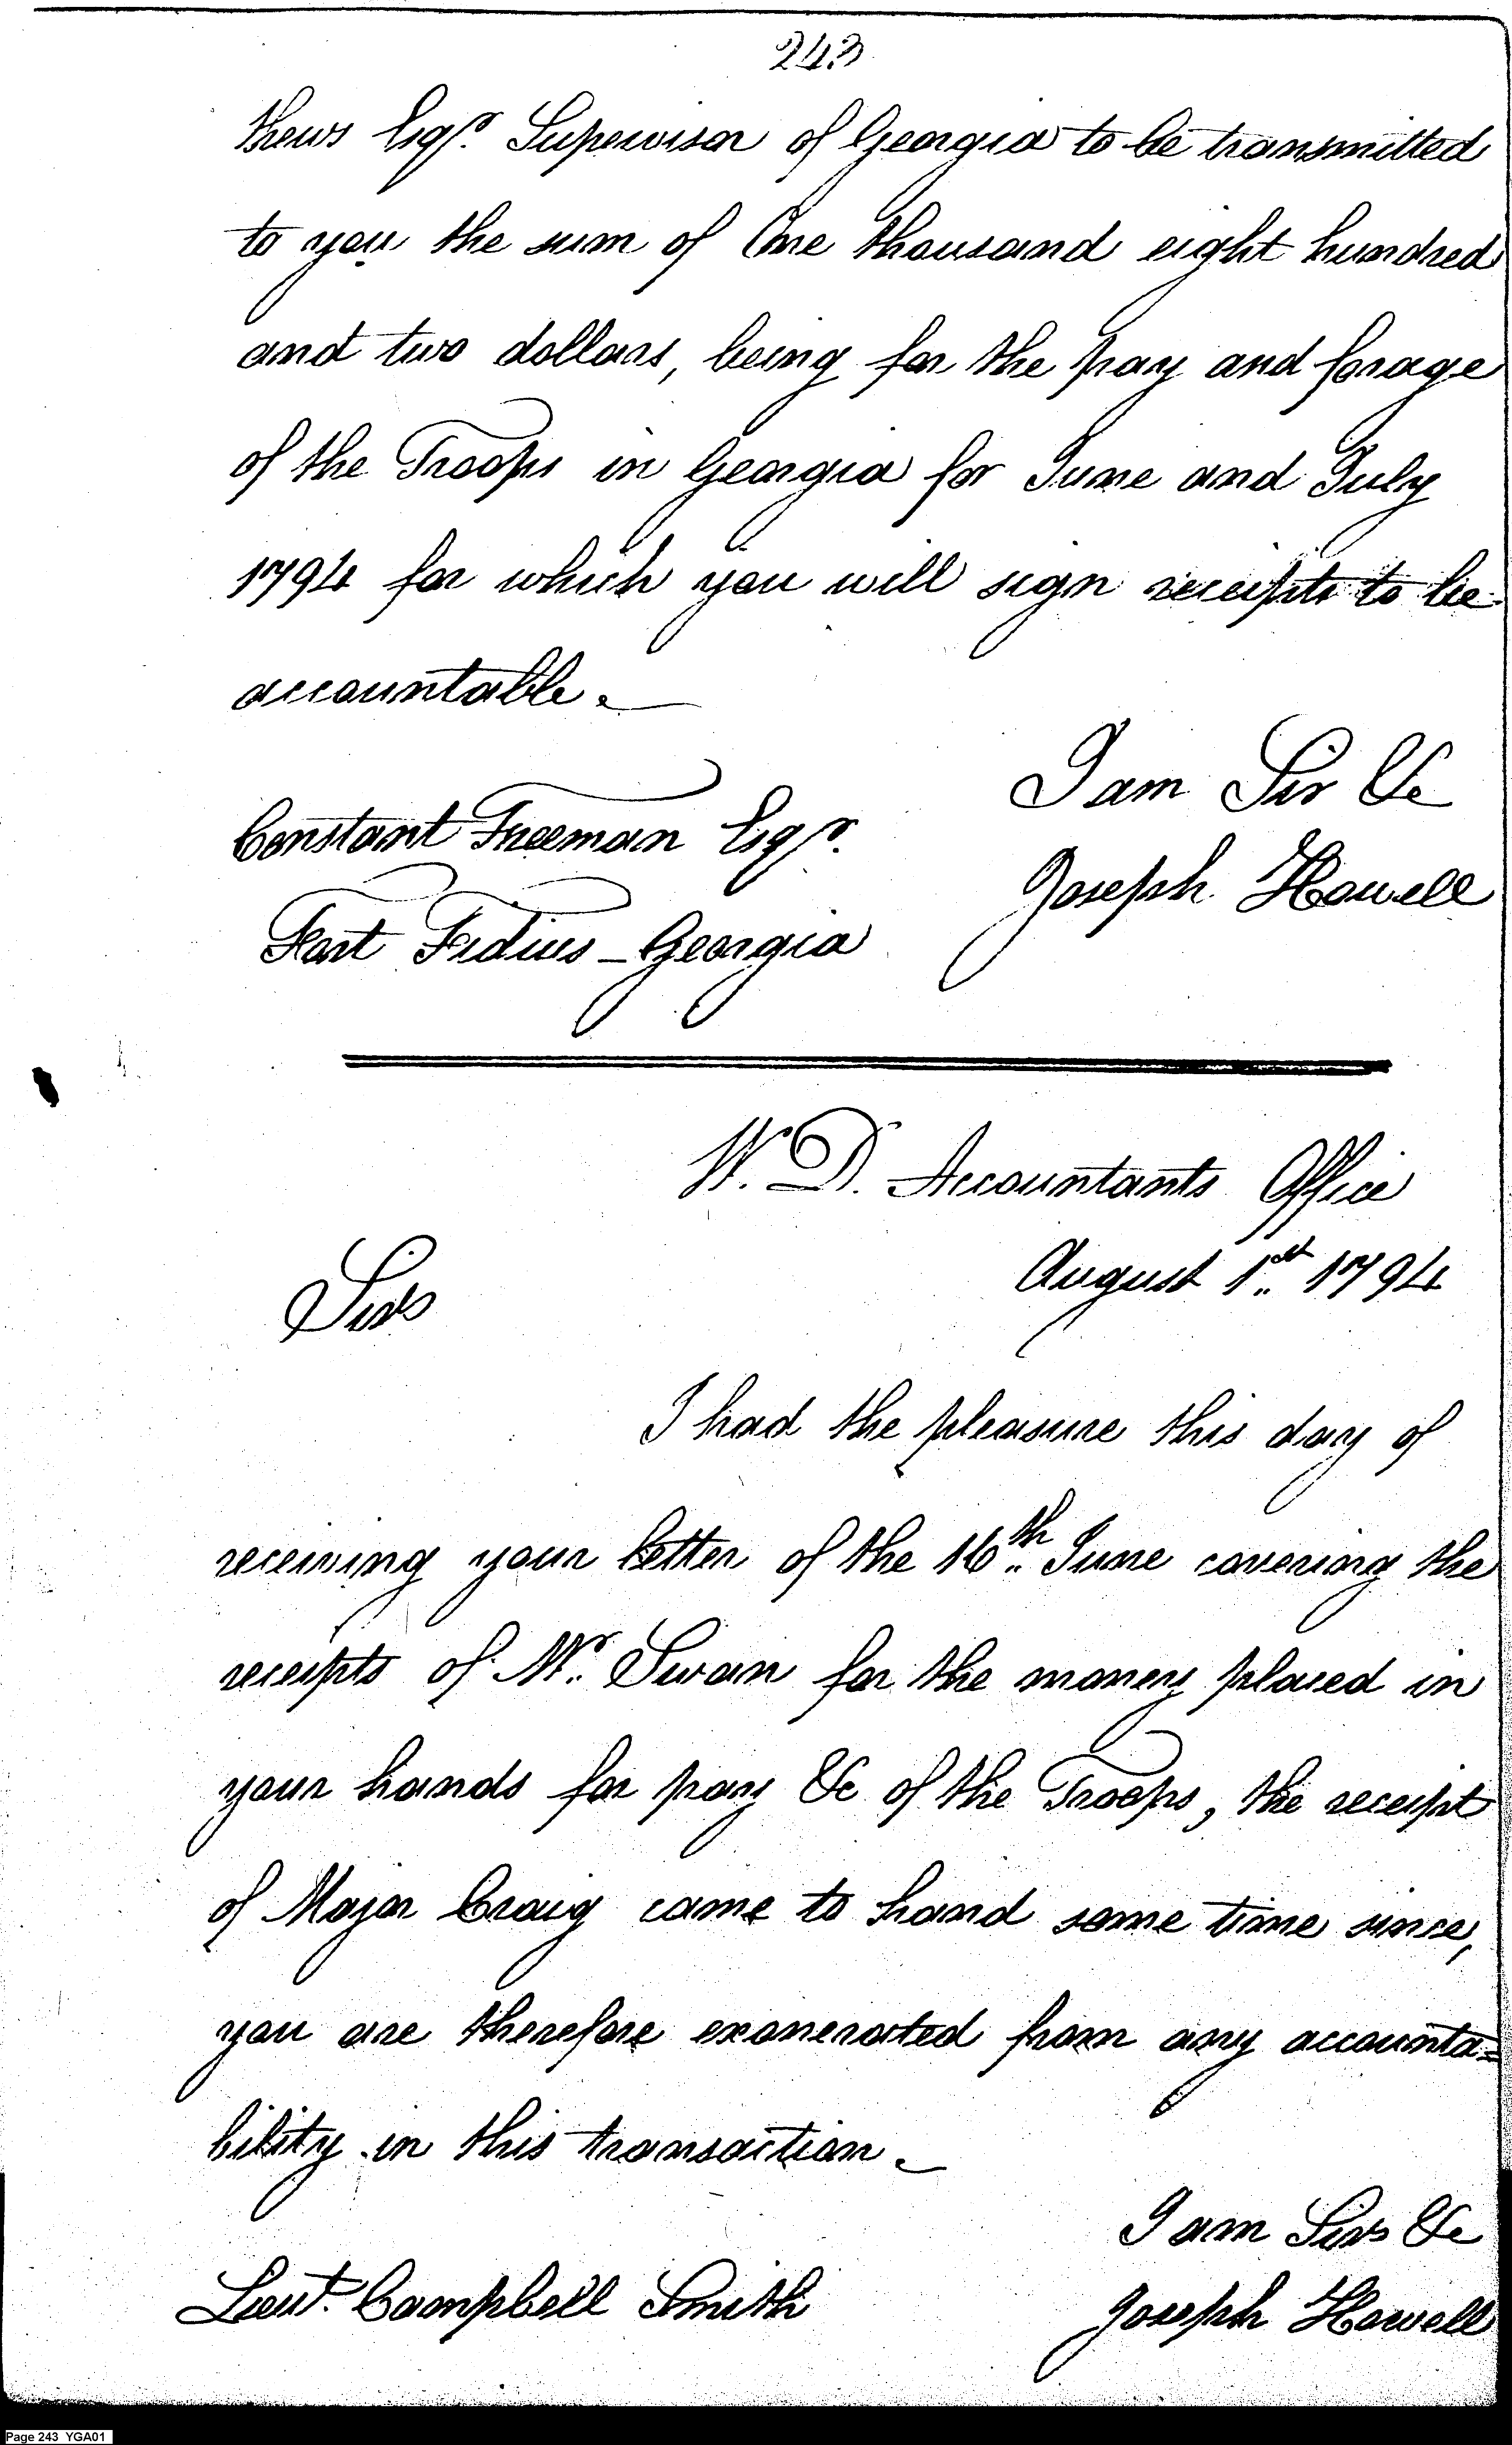 243
thews Esqr. Supervisor of Georgia to be transmitted
to you the sum of One thousand eight hundred
and two dollars, being for the pay and forage
of the Troops in Georgia for June and July
1794 for which you will sign receipts to be
accountable.
I am Sir &c
Constant Freeman Esqr.
Joseph Howell
Fort Fidius - Georgia
W. D. Accountants Office
August 1st 1794
Sir
I had the pleasure this day of
receiving your letter of the 16th June covering the
receipts of Mr. Swan for the money placed in
your hands for pay &c of the Troops, the receipt
of Major Craig came to hand some time since,
you are therefore exonerated from any accounta=
bility in this transaction.
I am Sir &c
Lieut. Campbell Smith
Joseph Howell
Page 243 YGA01